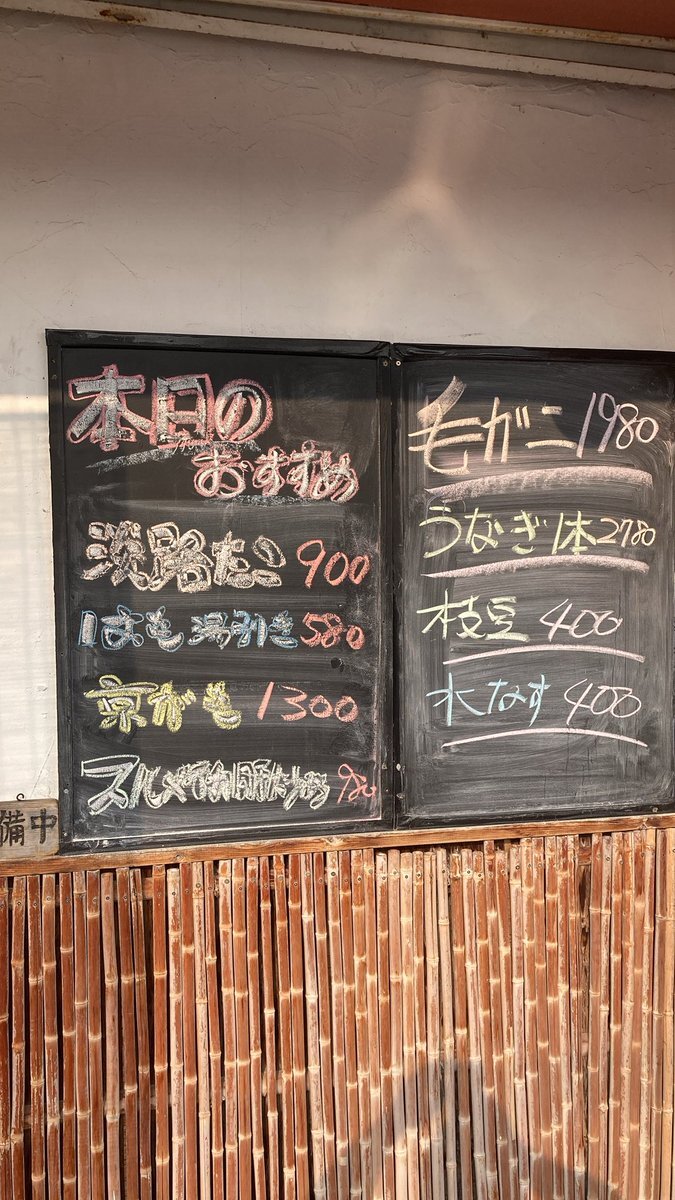 本日の
おすすめ
淡路たこ 900
はも 湯引き 580
京がも 1300
980
毛ガニ 1980
うなぎ1本 2780
枝豆 400
水なす 400
備中